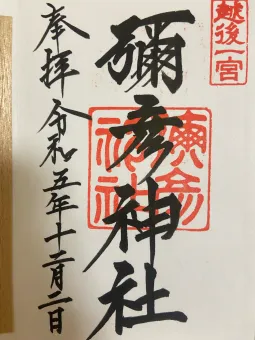 越後一宮
彌彦神社
彌彦神社
奉拝 令和五年十二月二日